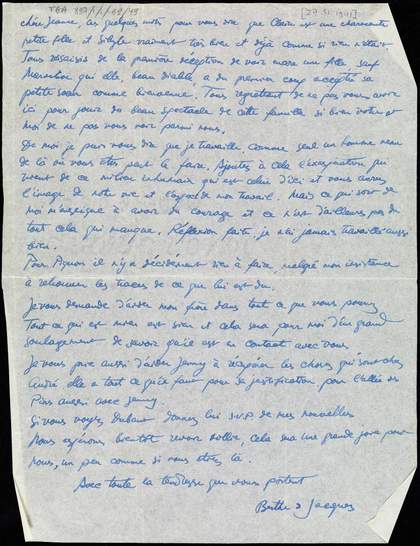 TGA 897/1/1/49/43 [27 XI 1941]
chère Jeanne, ces quelques mots pour vous dire que Claire est une charmante
petite fille et Sibyle vraiment très bien et déjà comme si rien n'était
Tous ressaisis de la première déception de voir encore une fille sauf
Marushow qui elle, beau diable a du premier coup accepté sa
petite soeur comme bienvenue. Tous regrettent de ne pas vous avoir
ici pour jouir du beau spectacle de cette famille si bien vôtre et
moi de ne pas vous voir parmi nous.
De moi je puis vous dire que je travaille comme seul un homme venu
de là où vous êtes peut le faire. Ajoutez à cela l'exaspération qui
vient de ce milieu inhumain qui est celui d'ici et vous aurez
l'image de notre vie et l'aspect de mon travail. Mais ce qui sort de
moi m'enseigne à avoir du courage et ce n'est d'ailleurs pas du
tout cela qui manque. Réflexion faite, je n'ai jamais travaillé aussi
bien.
Pour il n'y a décidément rien à faire, malgré mon insistance
à retrouver les traces de ce que lui est dû.
Je vous demande d'aider mon frère dans tout ce que vous pouvez
Tout ce qui est mien est sien et cela sera pour moi d'un grand
soulagement de savoir qu'il est en contact avec vous.
Je vous prie aussi d'aider Jenny à récupérer les choses qui sont chez
André elle a tout ce qu'il faut pour sa justification pour
aussi avec Jenny.
Si vous voyez Dubant donnez lui s.v.p de mes nouvelles
Nous espérons bientôt revoir cela sera une grande joie pour
nous, un peu comme si vous étiez là.
Avec toute la tendresse que vous portent
Berthe & Jacques